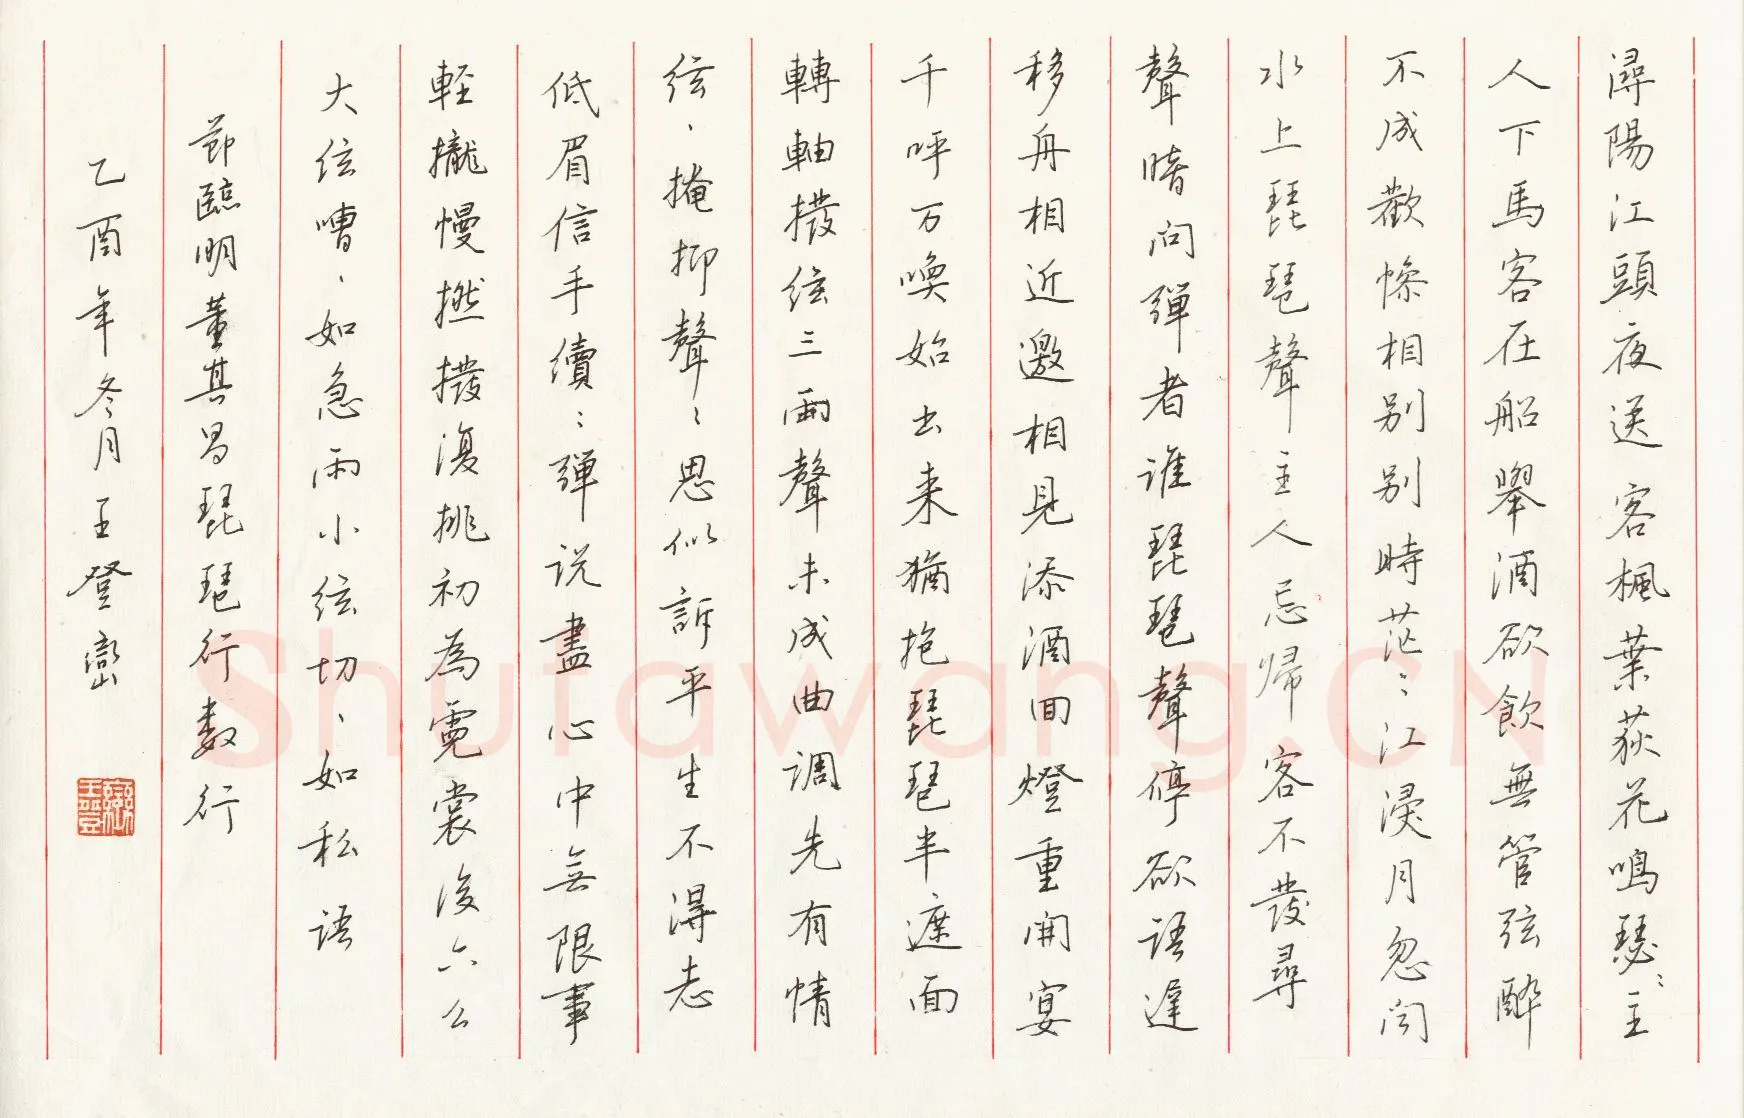 潯陽江頭夜送客楓葉荻花鳴瑟〻主
人下馬客在船舉酒欲飲無管弦醉
不成歡慘相別別時茫〻江浸月忽聞
水上琵琶聲主人忘歸客不發尋
聲暗問彈者誰琵琶聲停欲語遲
移舟相近邀相見添酒回燈重開宴
千呼万喚始出来猶抱琵琶半遮面
轉軸撥弦三兩聲未成曲調先有情
弦〻掩抑聲〻思似訴平生不得志
低眉信手續〻彈説盡心中無限事
輕攏慢撚撥復挑初為霓裳後六么
大弦嘈〻如急雨小弦切〻如私語
節臨明董其昌琵琶行数行
乙酉年冬月王登巒
王登巒
Shufawang.CN